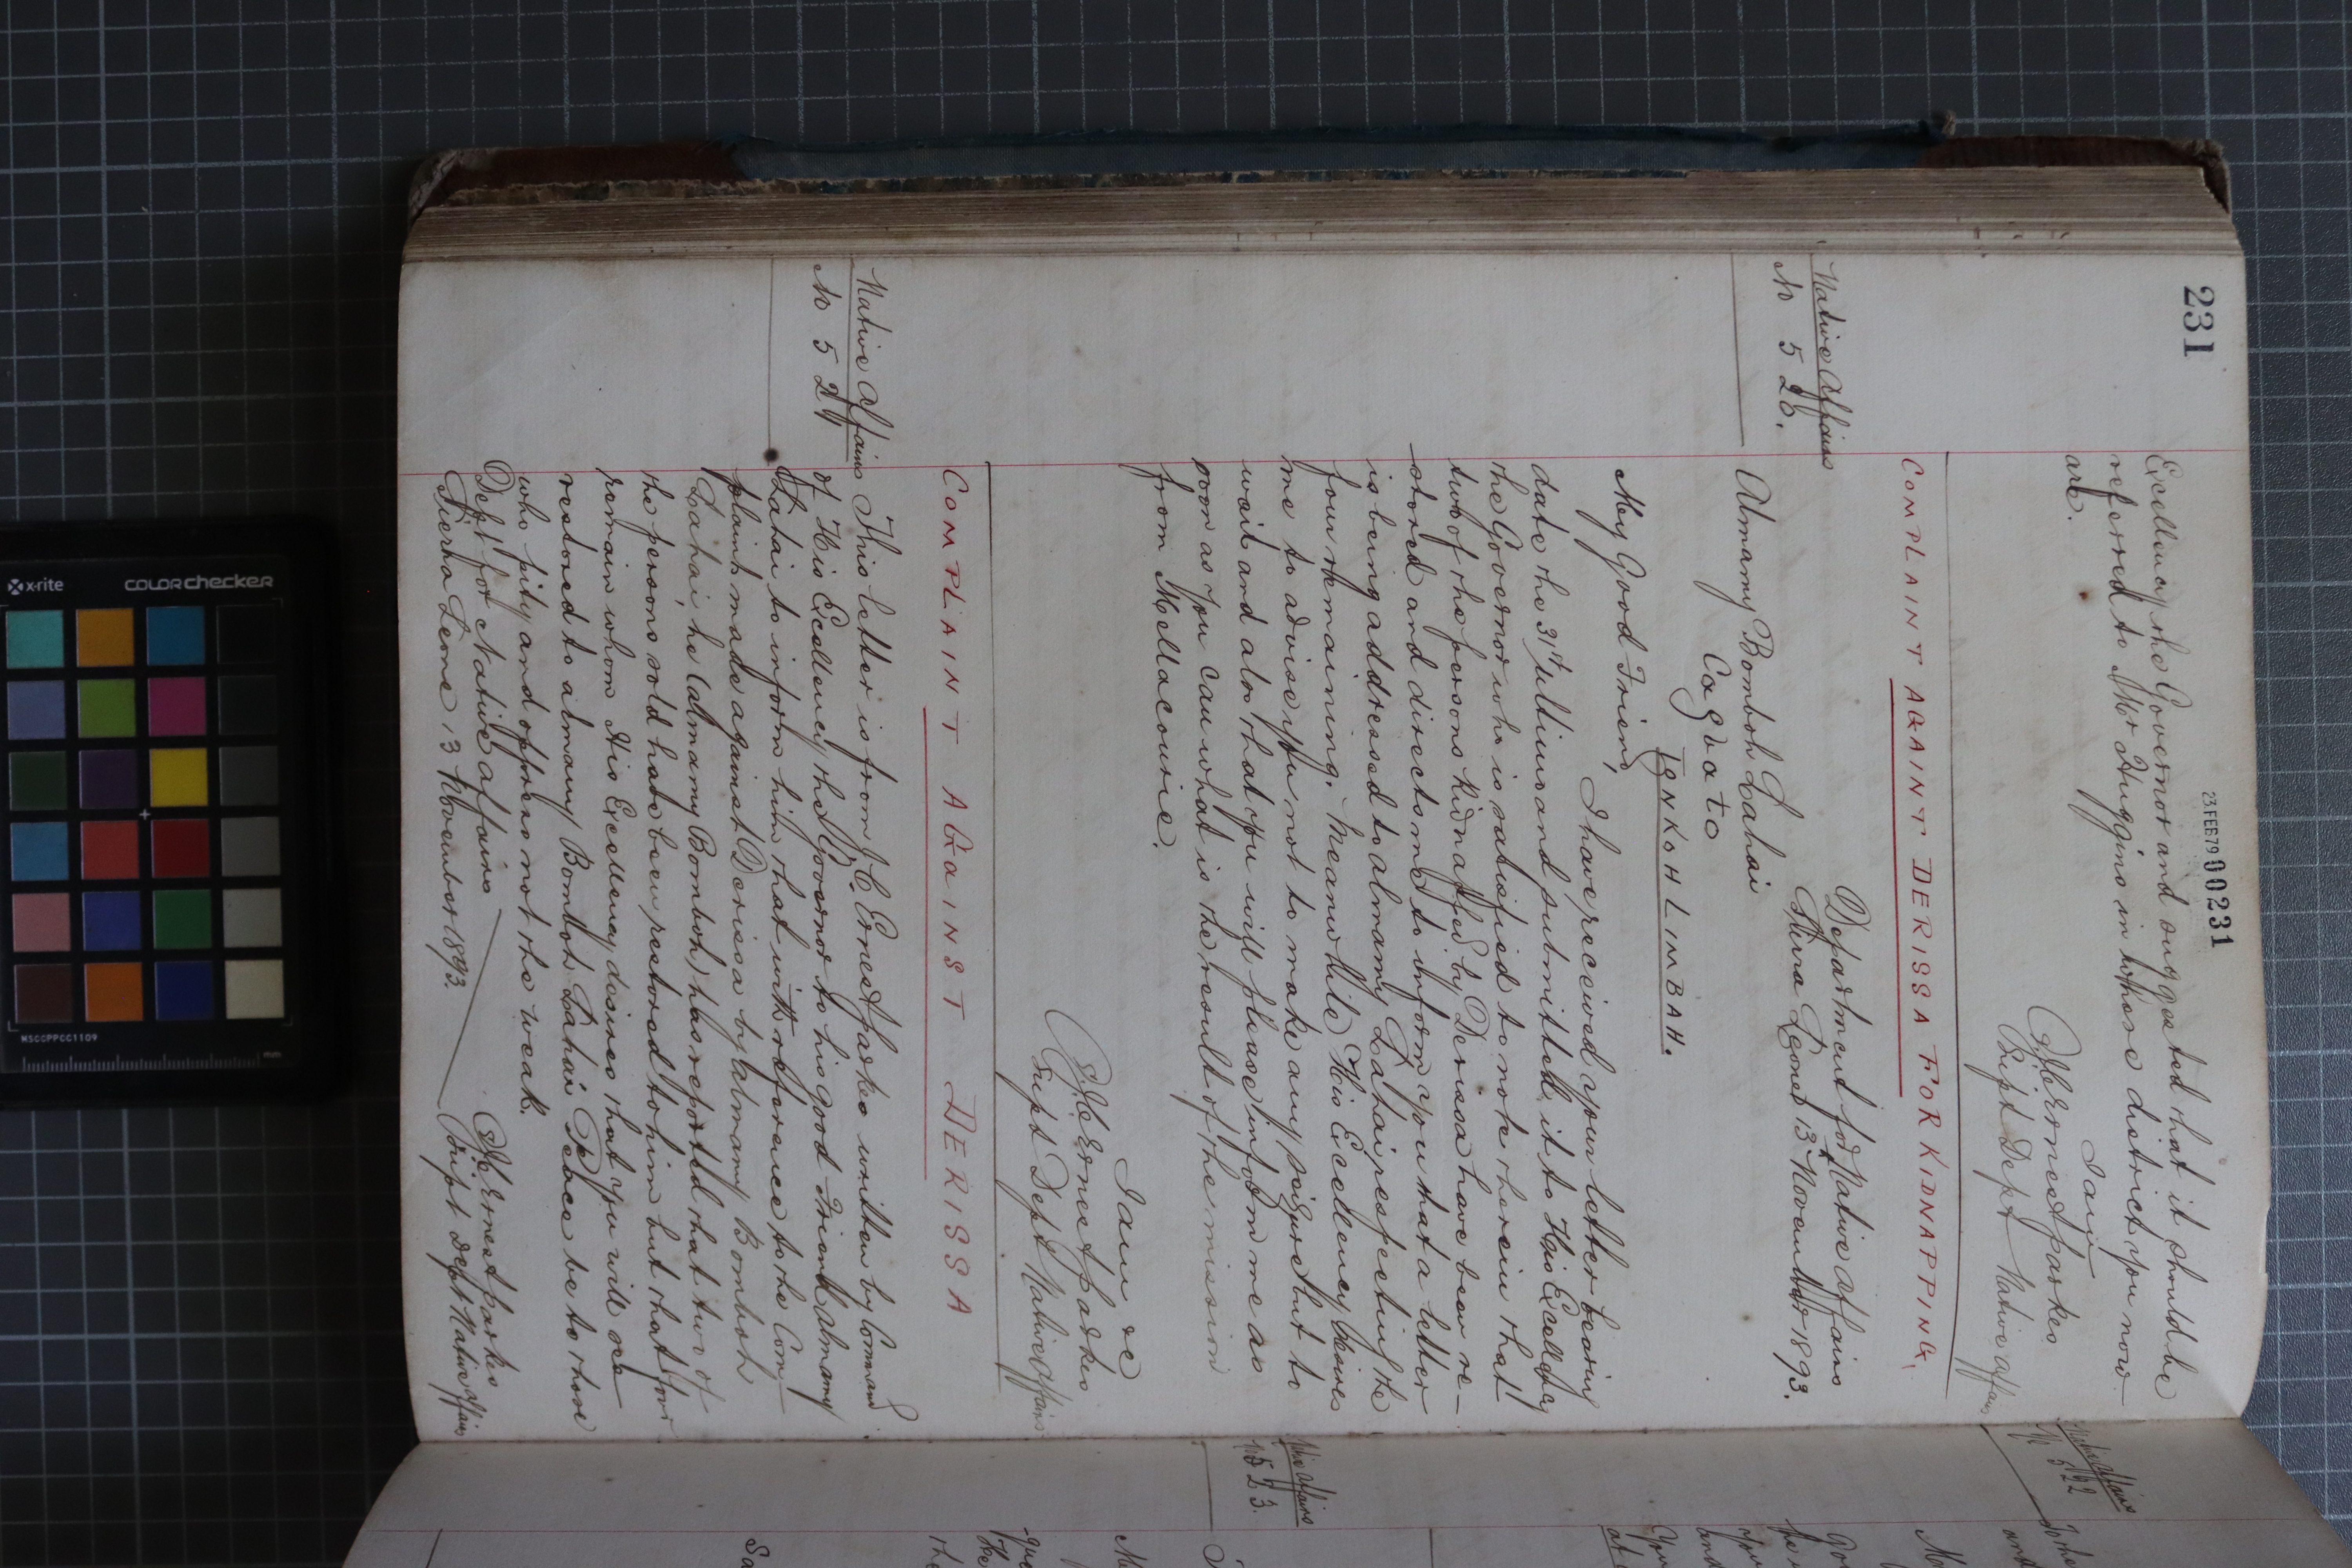 231
23 FEB 79 00231
Excellency the Governor and suggested that it should be
referred to Mr Huggins in whose district you now
are.
I am
J. C. Ernest Parkes
Supt Dept Native Affairs
COMPLAINT AGAINT DERISSA FOR KIDNAPPING.
Native Affairs
No 520.
Department for Native Affairs
Sierra Leone 13 November 1893.
Almamy Bomboh Lahai
Cagbato
TONKOH LIMBAH.
My Good Friend,
I have received your letter bearing
date the 31st Ultimo and submitted it to His Excellency
the Governor who is satisfied to note therein that
two of the persons kidnapped by Derissa have been re-
stored and directs me to inform you that a letter
is being addressed to Almamy Lahai respecting the
four remaining. Meanwhile His Excellency desires
me to advise you not to make any but to
wait and also that you will please inform me as
soon as you can what is the result of the mission
from Mellacourie.
I am &c
J. C. Ernest Parkes
Supt Dept Native Affairs
COMPLAINT AGAINST DERISSA
Native Affairs
No 521
This letter is from J. C. Ernest Parkes written by Command
of His Excellency the Governor to his good Friend Almamy
Lahai to inform him that with reference to the Com-
plaint made against Derissa by Almamy Bomboh
Lahai, he (Almamy Bomboh) has reported that two of
the persons sold have been restored to him but that four
remain whom His Excellency desires that you will see
restored to Almamy Bomboh Lahai Peace be to those
who pity and oppress not the weak.
Dept for Native Affairs
Sierra Leone 13 November 1893.
J. C. Ernest Parkes
Supt Dept Native Affairs
Native Affairs
No 522
Native Affairs
No 523.